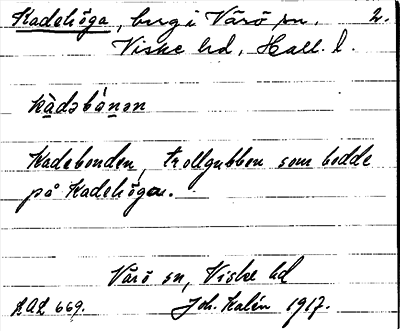 Kadehöga, berg i Värö sn. 2.
Viske hd, Hall. l.
kàdəbánən
Kadebonden, trollgubben som bodde
på Kadehögen.
Värö sn, Viske hd
LAL 669. Joh. Kalén 1917.